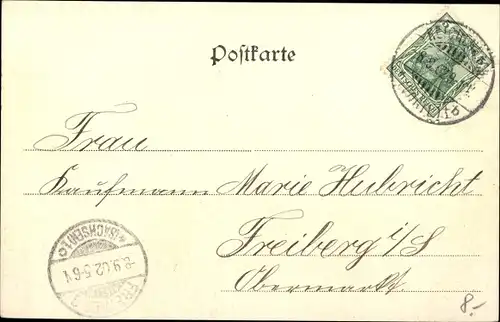 Postkarte
Frau
Kaufmann Marie Hubricht
Freiberg i/S
Obermarkt.
(SACHSEN)
8.9.02. 5-6 V
8.-